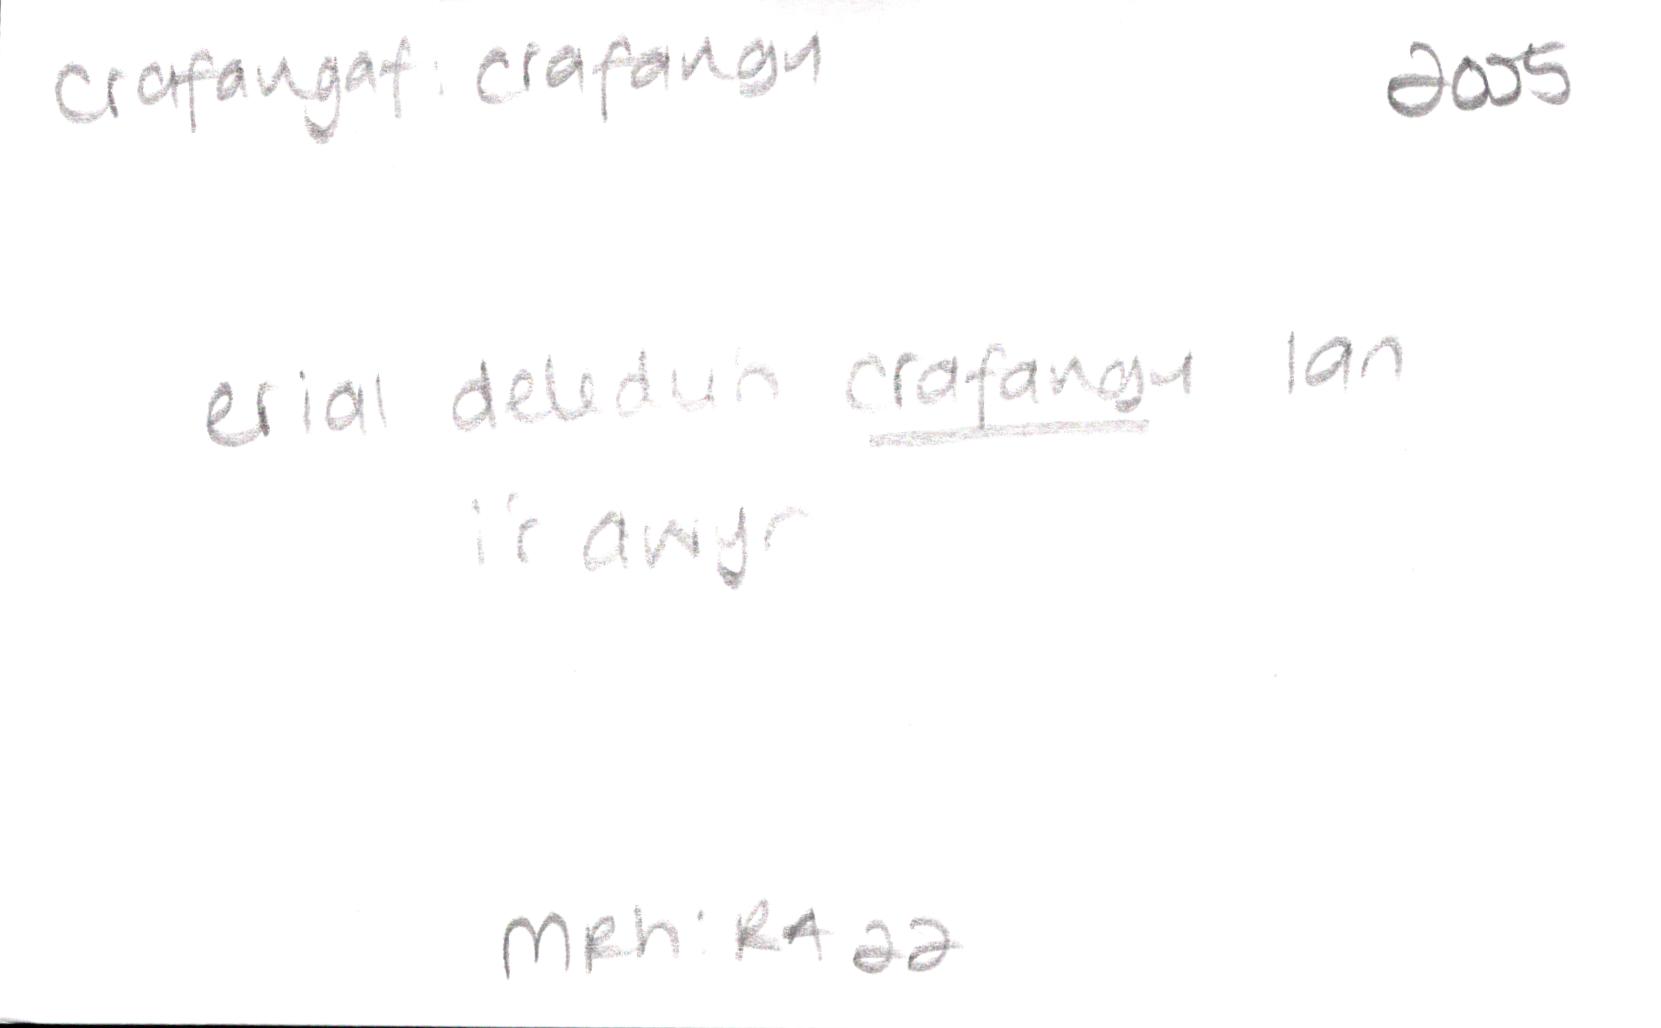 crafangaf: crafangu 2005
erial deledu'n crafangu lan
i'r awyr
MRh: RA 22